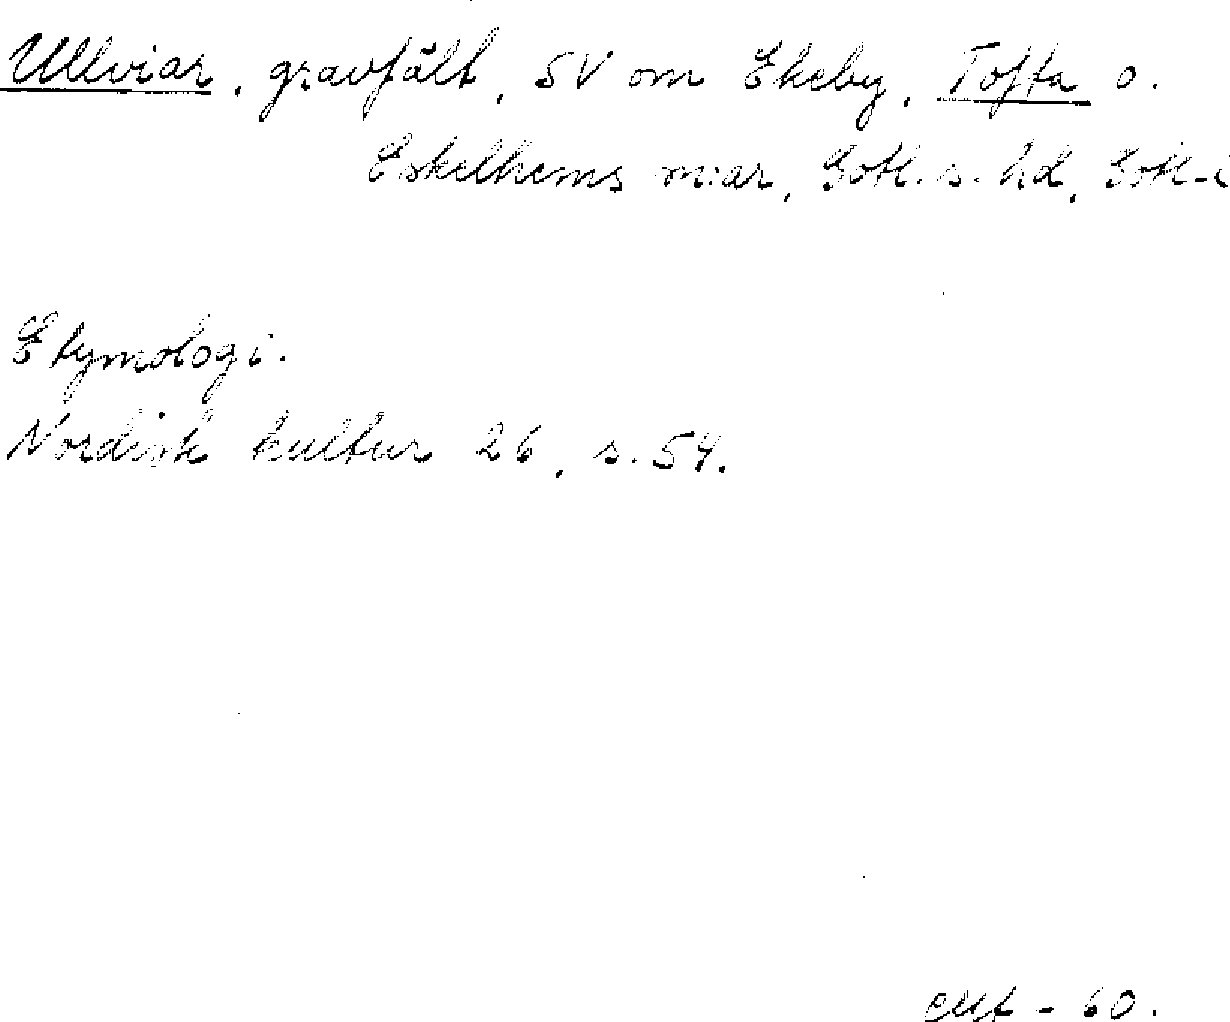 Ullviar, gravfält, SV om Ekeby, Tofta o.
Eskelhems m:ar, Gotl. s. hd, Gotl-
Etymologi.
Nordisk kultur 26, s. 54.
- 60.